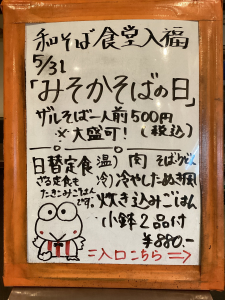 和そば食堂入福
5/31
「みそかそばの日」
ザルそば一人前500円
※大盛可！（税込）
日替定食 温）肉そばうどん
ざる定食も 冷）冷やしたぬき風
たきこみごはんです。 炊き込みごはん
小鉢2品付
¥880.-
=入口こちら=>